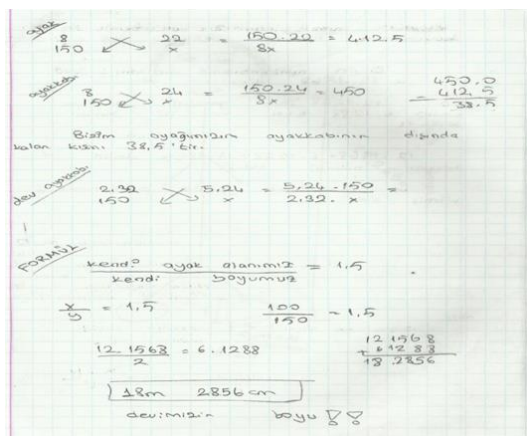 ayak
8 22 = 150.22 = 412.5
150 x 8x
ayakkabı
8 24 = 150.24 = 450
150 x 8x
450,0
- 412,5
38.5
Bizim ayağımızın ayakkabının dışında
kalan kısmı 38,5'tir.
dev ayakkabı
2.32 5.24 = 5.24.150 =
150 x 2.32.x
FORMÜL
kendi ayak alanımız = 1,5
kendi boyumuz
x = 1,5
y
100 = 1,5
150
12.1568 = 6.1288
2
12 1568
+ 6 12 88
18.2856
18m 2856 cm
devimizin boyu !!